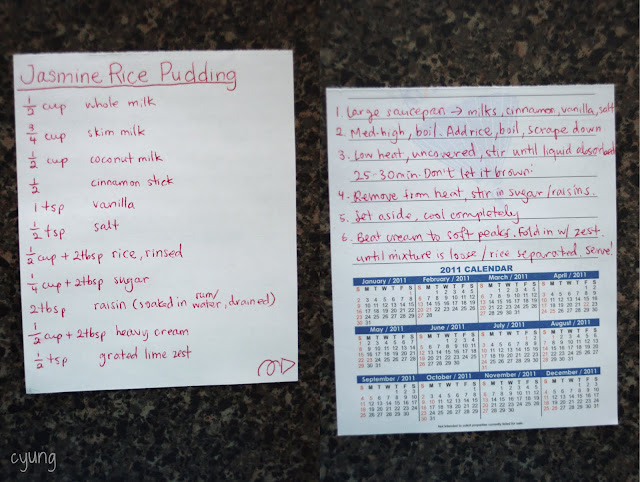 Jasmine Rice Pudding
1/2 cup whole milk
3/4 cup skim milk
1/2 cup coconut milk
1/2 cinnamon stick
1 tsp vanilla
1/2 tsp salt
1/2 cup + 2tbsp rice, rinsed
1/4 cup + 2tbsp sugar
2tbsp raisin (soaked in rum/water, drained)
1/2 cup + 2tbsp heavy cream
1/2 tsp grated lime zest
cyung
1. Large saucepan → milks, cinnamon, vanilla, salt
2. Med-high, boil. Add rice, boil, scrape down
3. Low heat, uncovered, stir until liquid absorbed
25-30min. Don't let it brown!
4. Remove from heat, stir in sugar/raisins.
5. Set aside, cool completely
6. Beat cream to soft peaks. Fold in w/ zest
until mixture is loose / rice separated. Serve!
2011 CALENDAR
January / 2011 February / 2011 March / 2011 April / 2011
S M T W T F S S M T W T F S S M T W T F S S M T W T F S
May / 2011 June / 2011 July / 2011 August / 2011
S M T W T F S S M T W T F S S M T W T F S S M T W T F S
September / 2011 October / 2011 November / 2011 December / 2011
S M T W T F S S M T W T F S S M T W T F S S M T W T F S